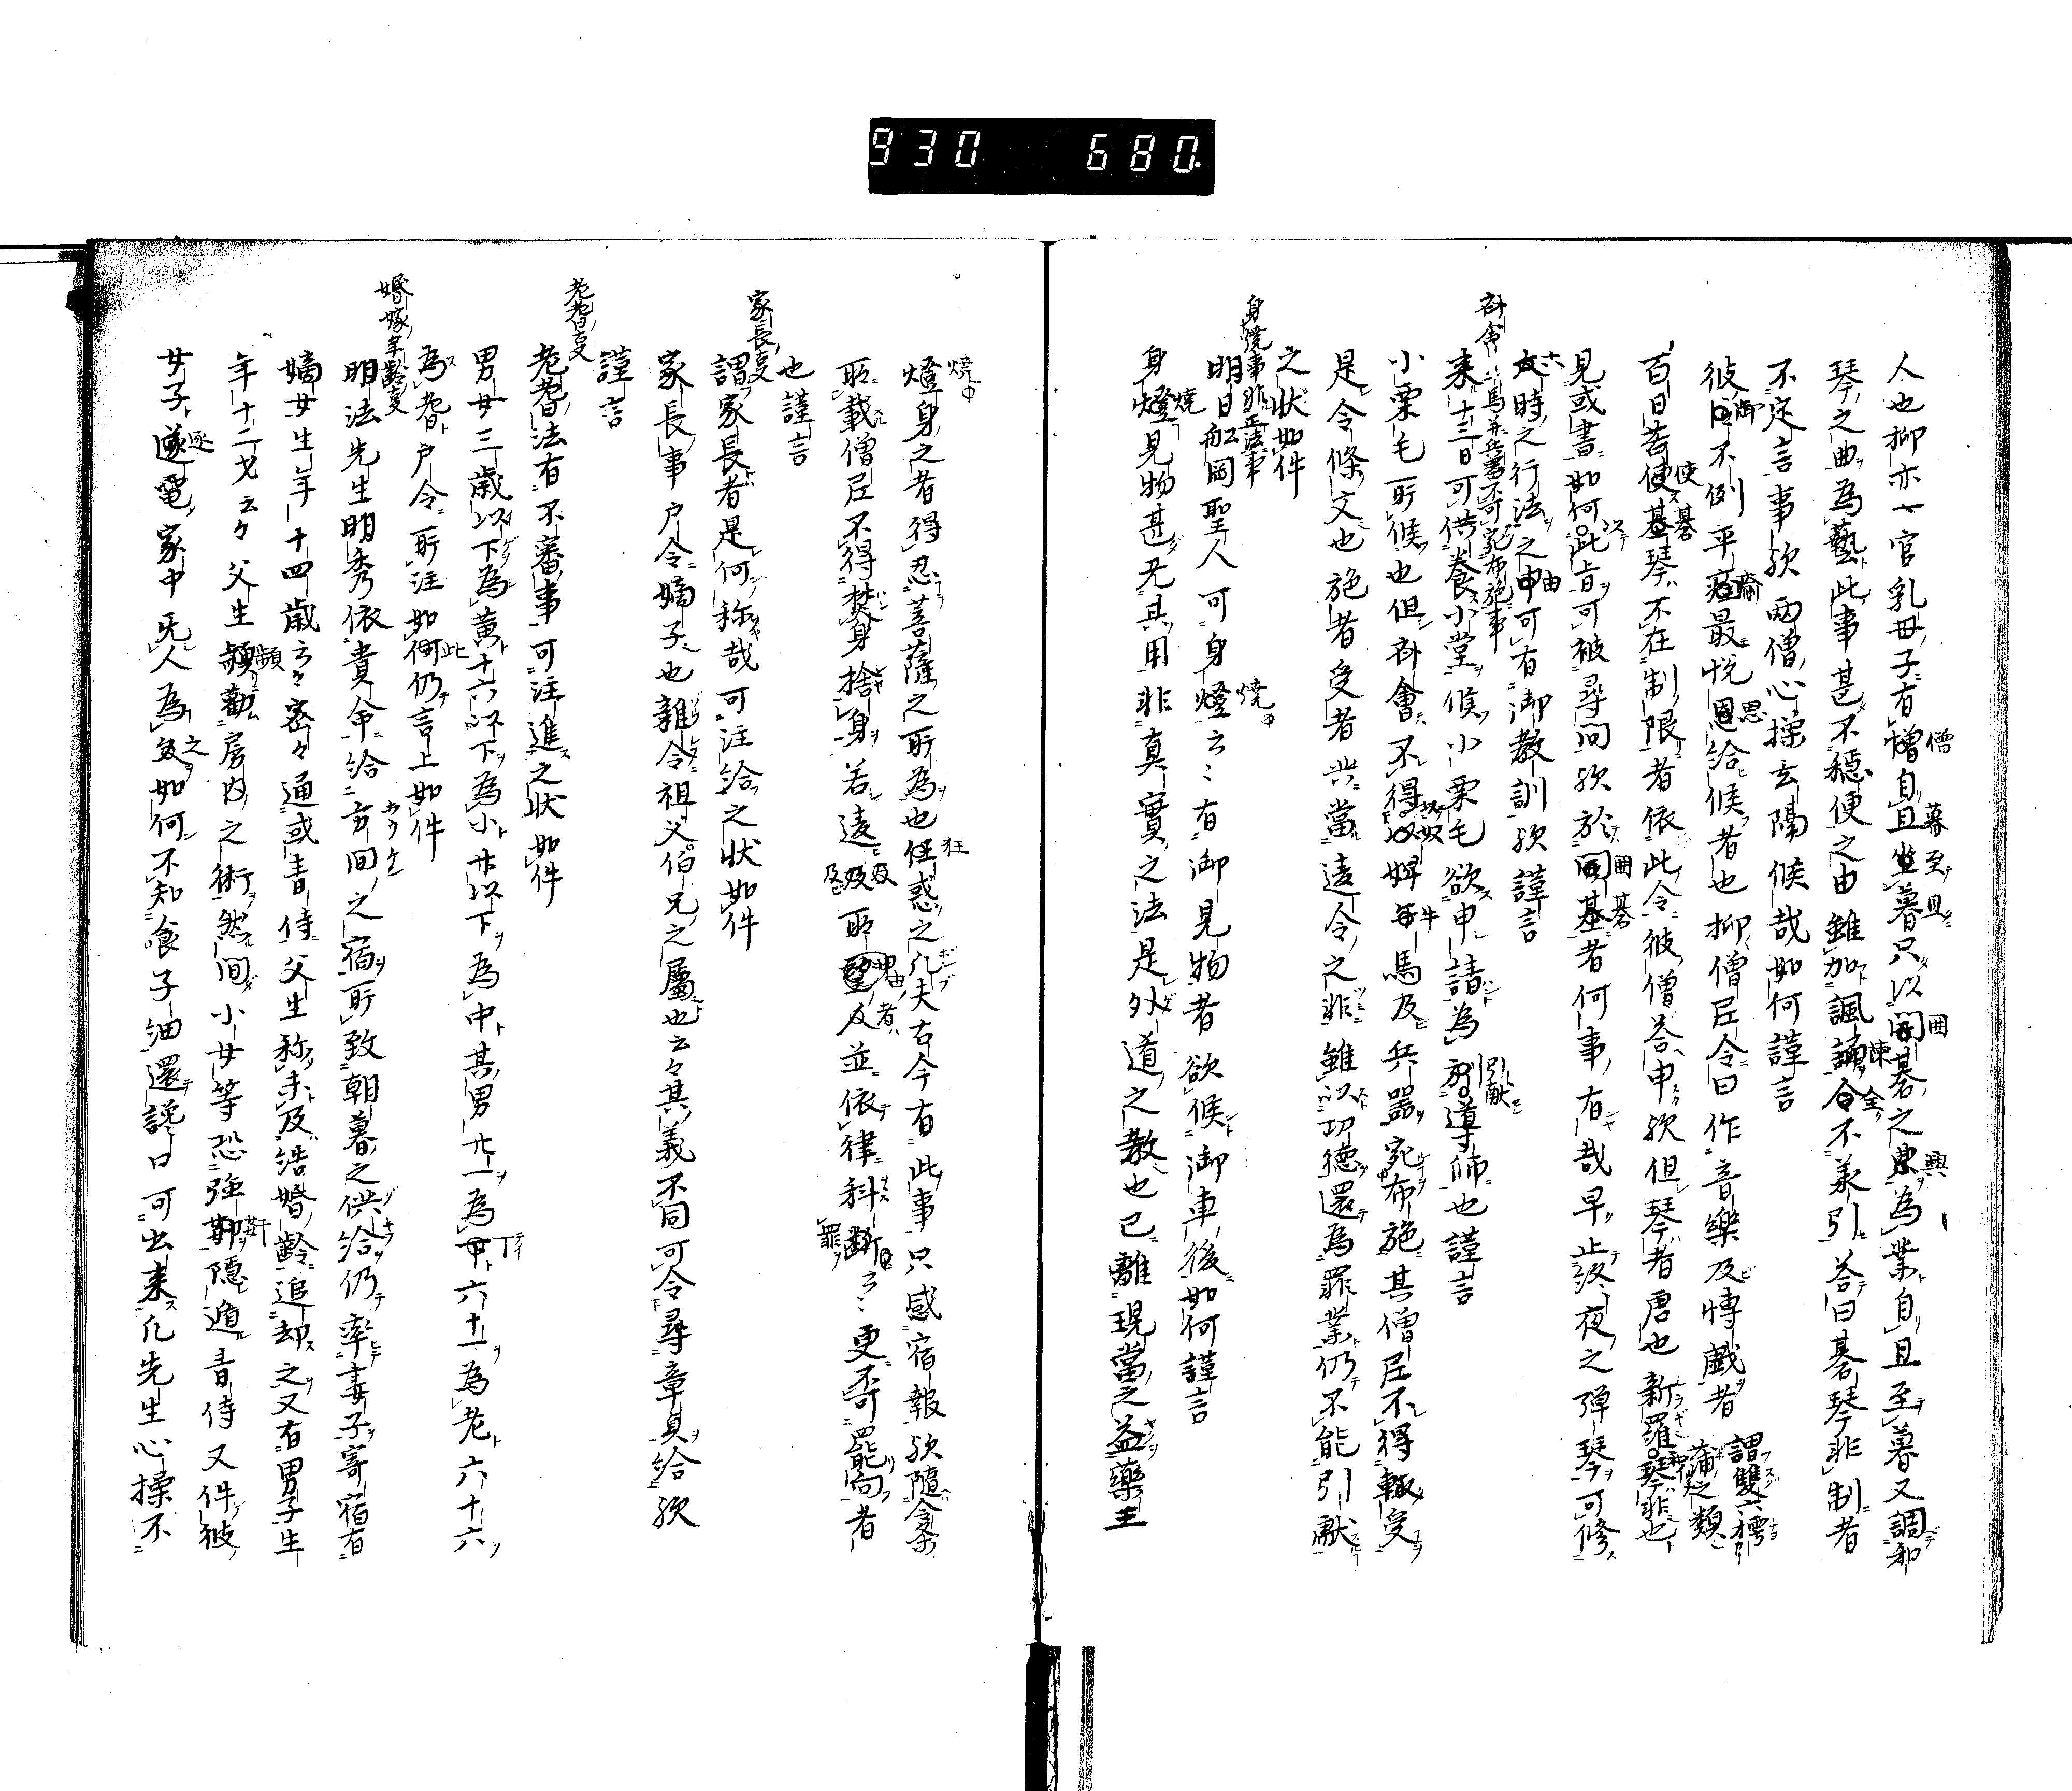 930 680.
人也抑亦一官乳母子有憎自旦坐暮只以開碁之思為業自旦至暮又調和
琴之曲為藝此事甚不穏便之由雖加諷諫令不承引答曰碁琴非制者
不定言事欤両僧心操玄隔候哉如何謹言
彼不例平癒最悦思給候者也抑僧尼令曰作音樂及博戯者
謂雙六樗
蒲之類
百日苦使碁琴不在制限者依此令彼僧答申欤但琴者唐也新羅琴非也
見或書如何此旨可被尋問欤於圍基者何事有哉早止終夜之弾琴可修
六時之行法之由可有御教訓欤謹言
来十三日可供養小堂候小栗毛欲申請為引導師也謹言
斎會奴馬并兵器不可宛布施事
小栗毛所候也但斎會不得奴婢牛馬及兵器宛布施其僧尼不得輙受
是令條文也施者受者共當違令之非雖以功徳還為罪業仍不能引献
之状如件
身燒事非正法事
明日船岡聖人可身燈云々有御見物者欲候御車後如何謹言
身燈見物甚无其用非真實之法是外道之教也已離現當之益藥王
燈身之者得忍菩薩之所為也狂惑之凡夫古今有此事只感宿報欤随令条
所載僧尼不得焚身捨身若違及所由者並依律科斷云々更不可罷向者
也謹言
家長事
謂家長者是何称哉可注給之状如件
家長事戸令嫡子也雜令祖父伯兄之屬也云々其義不同可令尋章臭給欤
謹言
老耆事
老耆法有不審事可注進之状如件
男女三歳以下為黄十六以下為小廿以下為中其男廿一為丁六十一為老六十六
為耆戸令所注如此仍言上如件
婚嫁年齡事
明法先生明秀依貴命給方間之宿所致朝暮之供給仍率妻子寄宿有
嫡女生年十四歳云々密々通或青侍父生称未及結婚齡追却之又有男子生
年十二才云々父生頻勸房内之術然間小女等恐強姧隠遁青侍又件彼
女子逐電家中无人為之如何不知食子細還讒曰可出来凡先生心操不